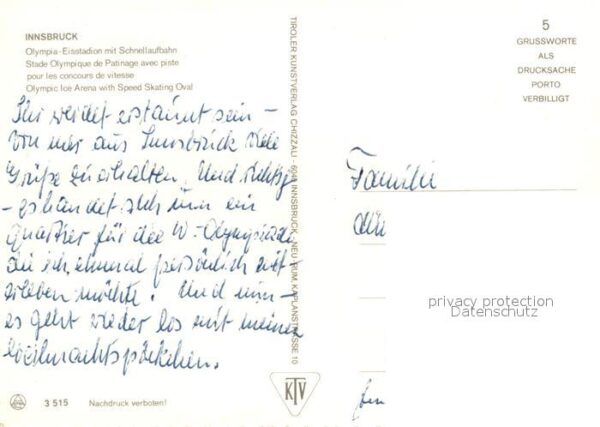 INNSBRUCK
Olympia-Eisstadion mit Schnellaufbahn
Stade Olympique de Patinage avec piste
pour les concours de vitesse
Olympic Ice Arena with Speed Skating Oval
Ihr werdet erstaunt sein -
von mir aus Innsbruck viele
Grüße zu erhalten. Und richtig
- es handelt sich um ein
Quartier für die W-Olympiade
die ich einmal persönlich mit
erleben möchte! Und nun -
es geht wieder los mit meinen
Weihnachtspäckchen.
3 515 Nachdruck verboten!
TIROLER KUNSTVERLAG CHIZZALI · INNSBRUCK, NEU RUM, KAPLANSTRASSE 10
KTV
5
GRUSSWORTE
ALS
DRUCKSACHE
PORTO
VERBILLIGT
Familie
privacy protection
Datenschutz